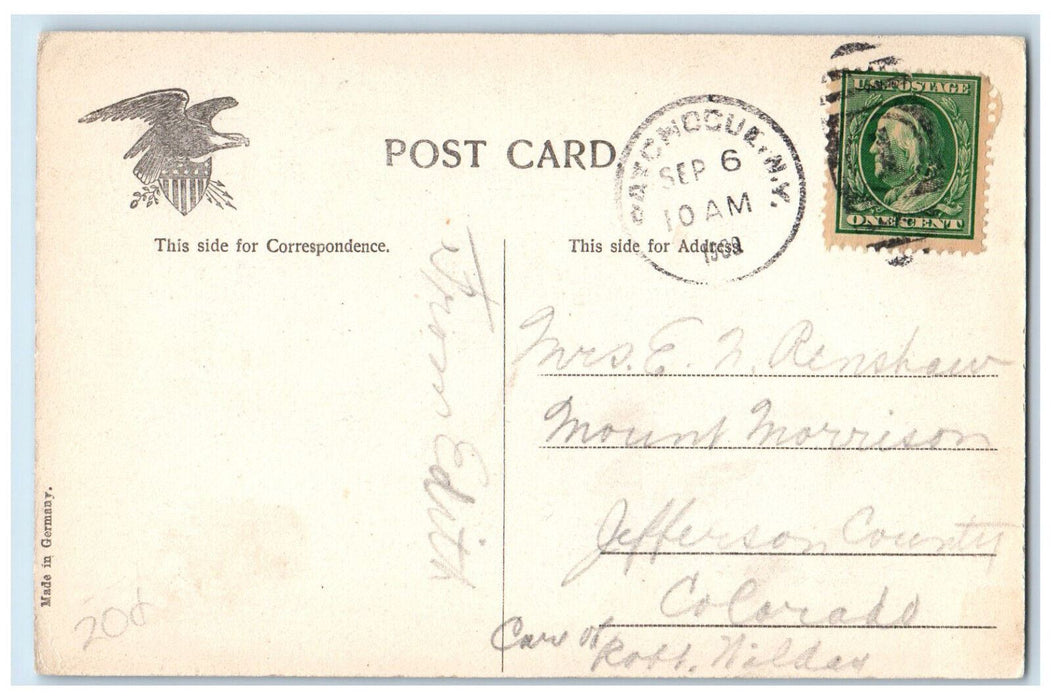 POST CARD
This side for Correspondence.
This side for Address.
PATCHOGUE, N.Y.
SEP 6
10 AM
U.S. POSTAGE
ONE CENT
From Edith
Mrs. E. N. Renshaw
Mount Morrison
Jefferson County
Colorado
Care of
Robt.
Made in Germany.
20¢